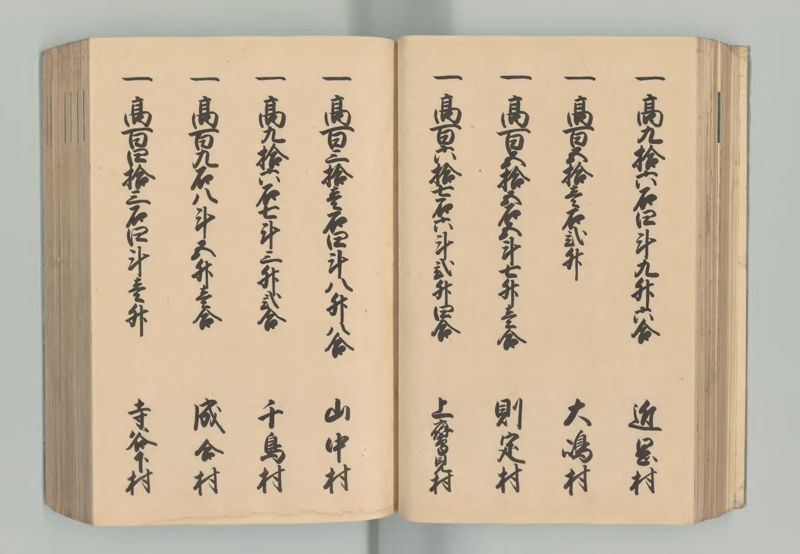 一 高九拾六石四斗九升六合 近岡村
一 高百五拾壱石弐升 大嶋村
一 高百五拾五石五斗七升壱合 則定村
一 高百六拾七石六斗弐升四合 上 村
一 高百三拾壱石四斗八升八合 山中村
一 高九拾六石七斗三升弐合 千鳥村
一 高百九石八斗五升壱合 成合村
一 高百四拾三石四斗壱升 寺谷下村